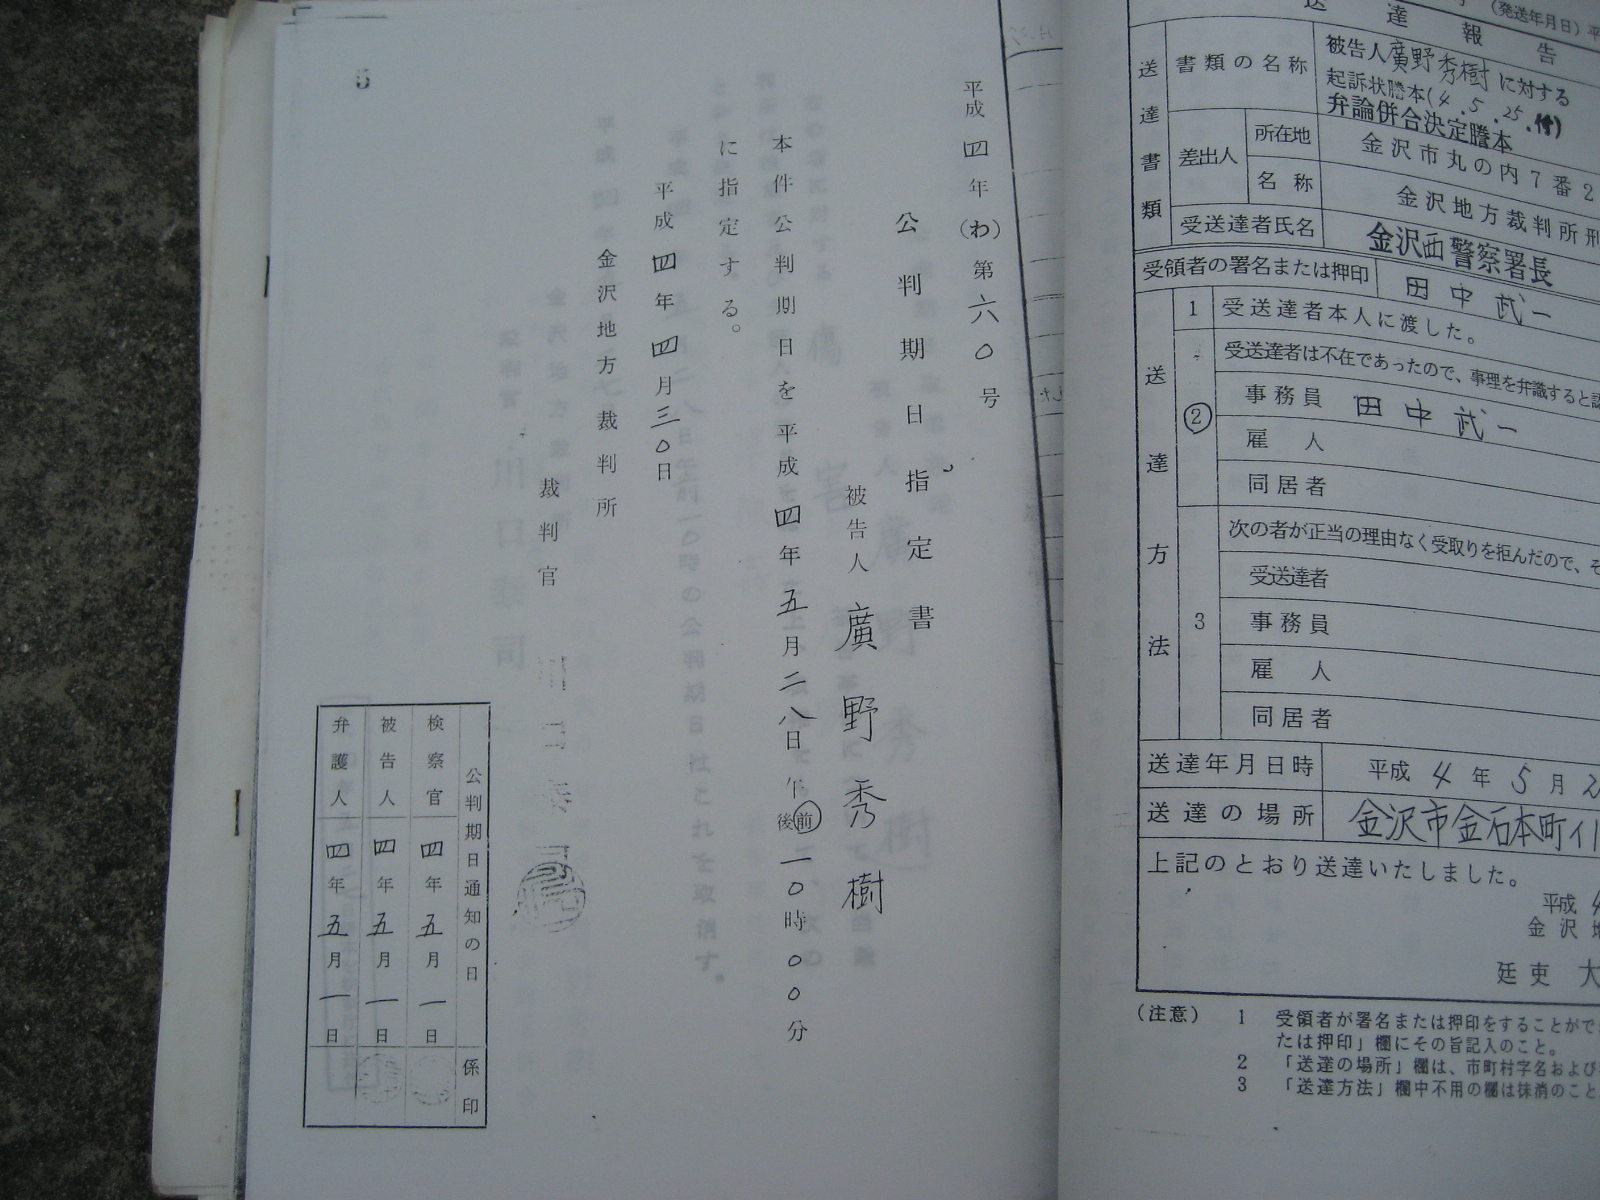 平成四年(わ)第六〇号
公判期日指定書
被告人 廣野秀樹
本件公判期日を平成四年五月二八日午前後一〇時〇〇分
に指定する。
平成四年四月三〇日
金沢地方裁判所
裁判官 川口泰司
公判期日通知の日 係印
検察官 四年五月一日
被告人 四年五月一日
弁護人 四年五月一日
5
(発送年月日) 平
送達報告
送達書類
書類の名称
被告人廣野秀樹に対する
起訴状謄本(4.5.25.付)
弁論併合決定謄本
差出人
所在地
金沢市丸の内7番2
名称
金沢地方裁判所刑
受送達者氏名
金沢西警察署長
受領者の署名または押印
田中武一
送達方法
1 受送達者本人に渡した。
2
受送達者は不在であったので、事理を弁識すると認
事務員 田中武一
雇人
同居者
3
次の者が正当の理由なく受取りを拒んだので、そ
受送達者
事務員
雇人
同居者
送達年月日時
平成4年5月2
送達の場所
金沢市金石本町イ
上記のとおり送達いたしました。
平成4
金沢地
廷吏 大
(注意) 1 受領者が署名または押印をすることがで
たは押印」欄にその旨記入のこと。
2 「送達の場所」欄は、市町村字名および
3 「送達方法」欄中不用の欄は抹消のこと